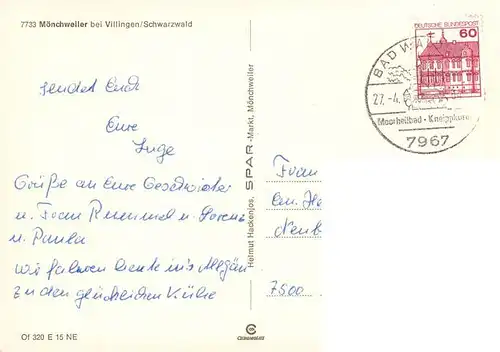 7733 Mönchweiler bei Villingen/Schwarzwald
sendet Euch
Eure
Inge
Grüße an Eure Geschwister
u. Frau Rummel u. Lorenz
u. Paula
wir fahren heute ins Allgäu
zu den glücklichen Kühe
Of 320 E 15 NE
Helmut Hackenjos, SPAR-Markt, Mönchweiler
DEUTSCHE BUNDESPOST
60
BAD WA
27. -4.
Moorheilbad · Kneippkurort
7967
Frau
7500